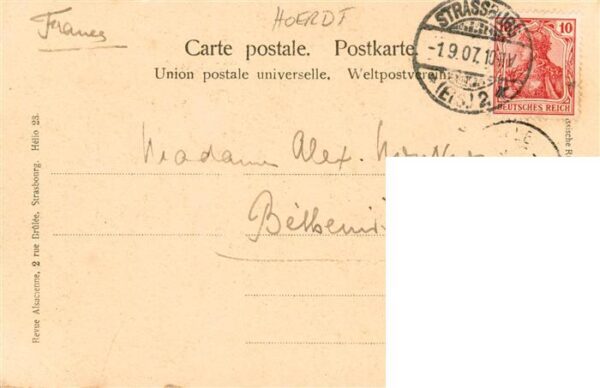 HOERDT
France
Carte postale. Postkarte.
Union postale universelle. Weltpostverein
STRASSBURG
-1.9.07.10-11V
(Els.) 2.
10
DEUTSCHES REICH
Madame Alex.
Revue Alsacienne, 2 rue Brûlée, Strasbourg. Hélio 23.